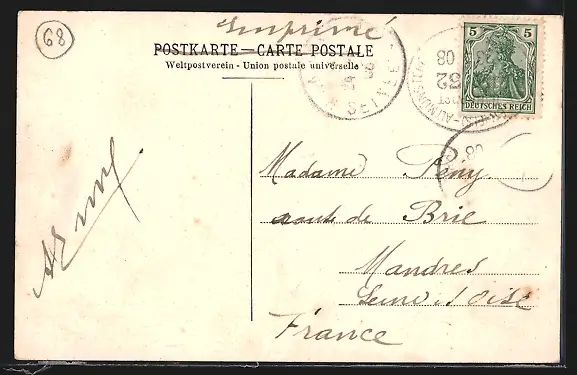 68
Imprimé
POSTKARTE — CARTE POSTALE
Weltpostverein - Union postale universelle
5 5
DEUTSCHES REICH
Madame Rémy
route de Brie
Mandres
Seine & Oise
France